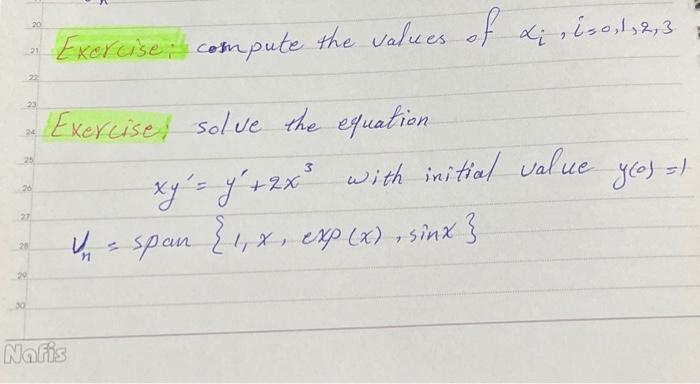 20
21 Exercise: compute the values of αᵢ, i=0,1,2,3
22
23
24 Exercise: solve the equation
25
26 xy' = y' + 2x³ with initial value y(0)=1
27
28 Uₙ = span {1, x, exp(x), sinx}
29
30
Nafis